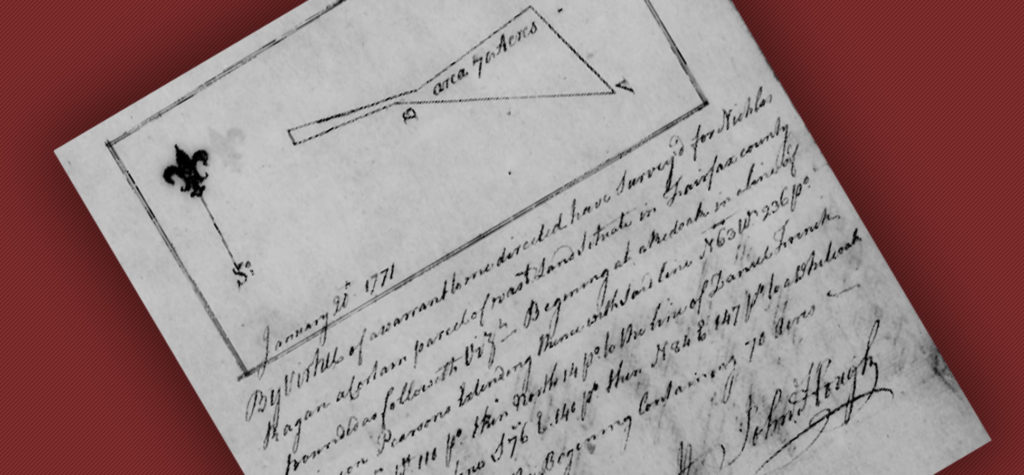 area 70 Acres
B
A
So
January 21st 1771
By Virtue of a warrant to me directed have Survey'd for Nichlas
Ragan a Certain parcel of wast Land Situate in Fairfax county
bounded as followeth Viz Begining at a Red oak in a line of
Pearsons Extending thence with said line N63 Wt 236 po
Wt 110 po then North 14 po to the line of Daniel French
S76 E 140 po then N84 E 147 po to a White oak
Begening Containing 70 Acres
John Hough